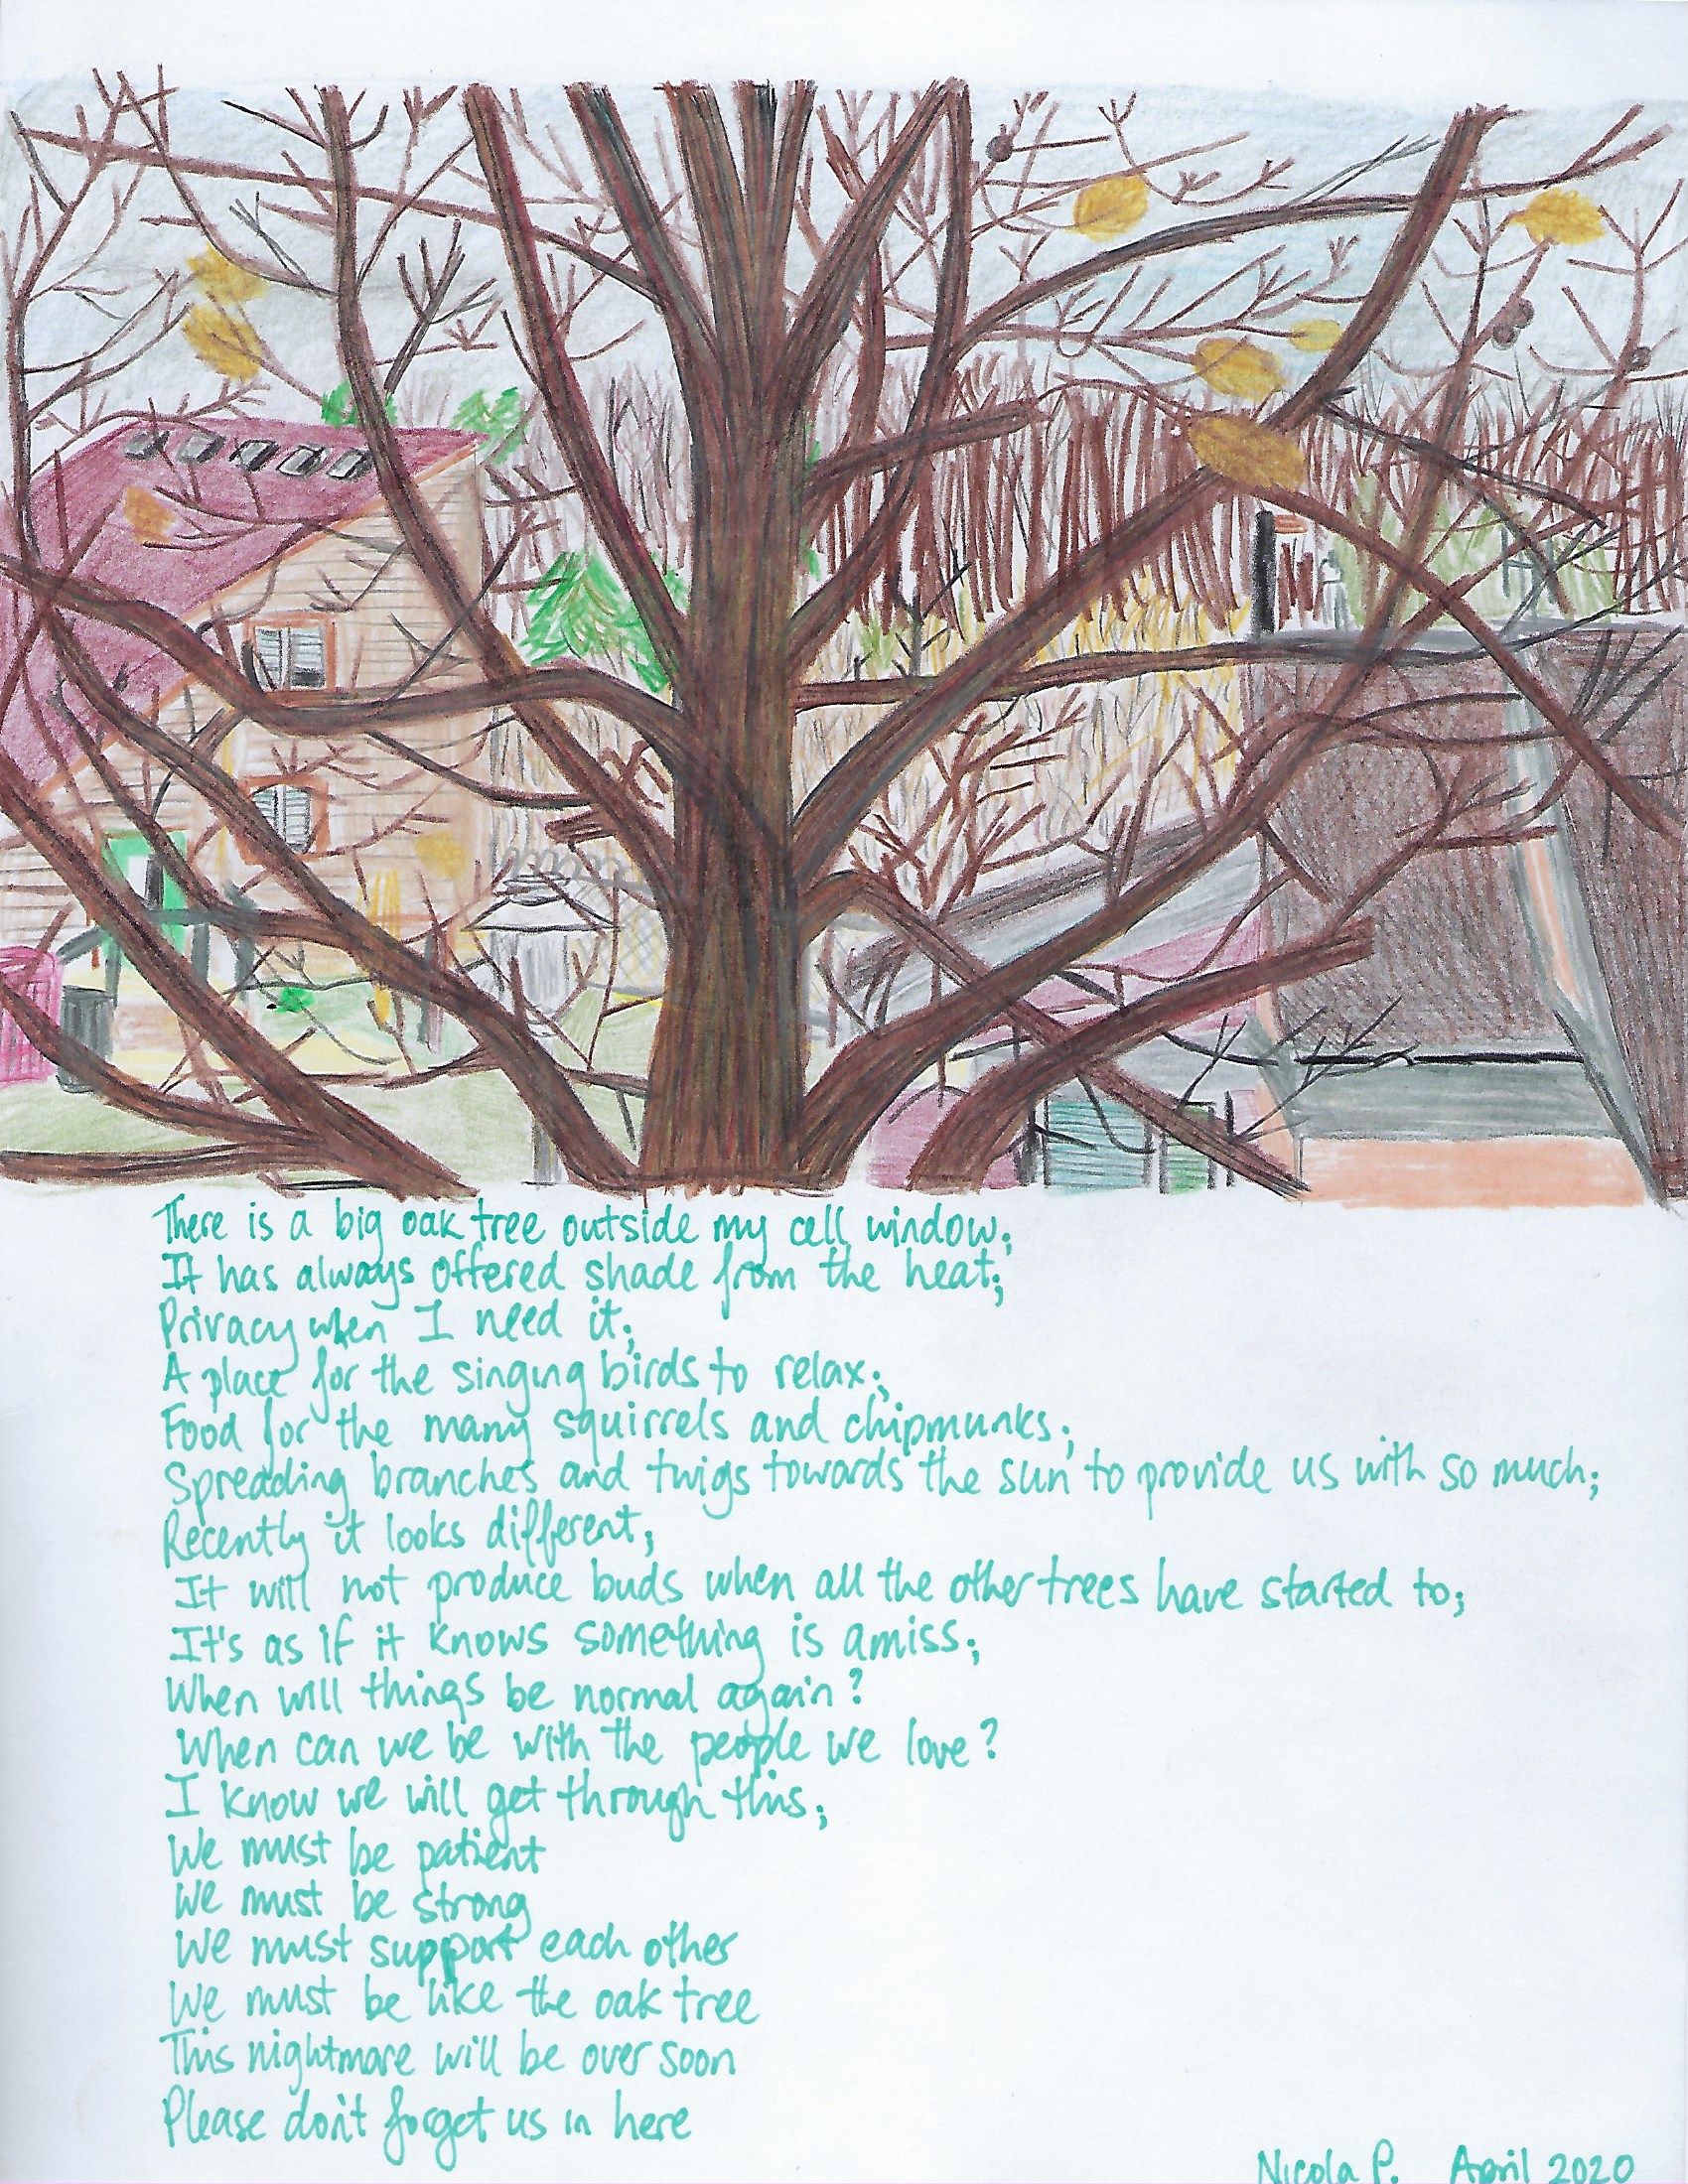 There is a big oak tree outside my cell window;
It has always offered shade from the heat;
Privacy when I need it;
A place for the singing birds to relax;
Food for the many squirrels and chipmunks;
Spreading branches and twigs towards the sun to provide us with so much;
Recently it looks different;
It will not produce buds when all the other trees have started to;
It's as if it knows something is amiss;
When will things be normal again?
When can we be with the people we love?
I know we will get through this;
We must be patient
We must be strong
We must support each other
We must be like the oak tree
This nightmare will be over soon
Please don't forget us in here
Nicola P. April 2020